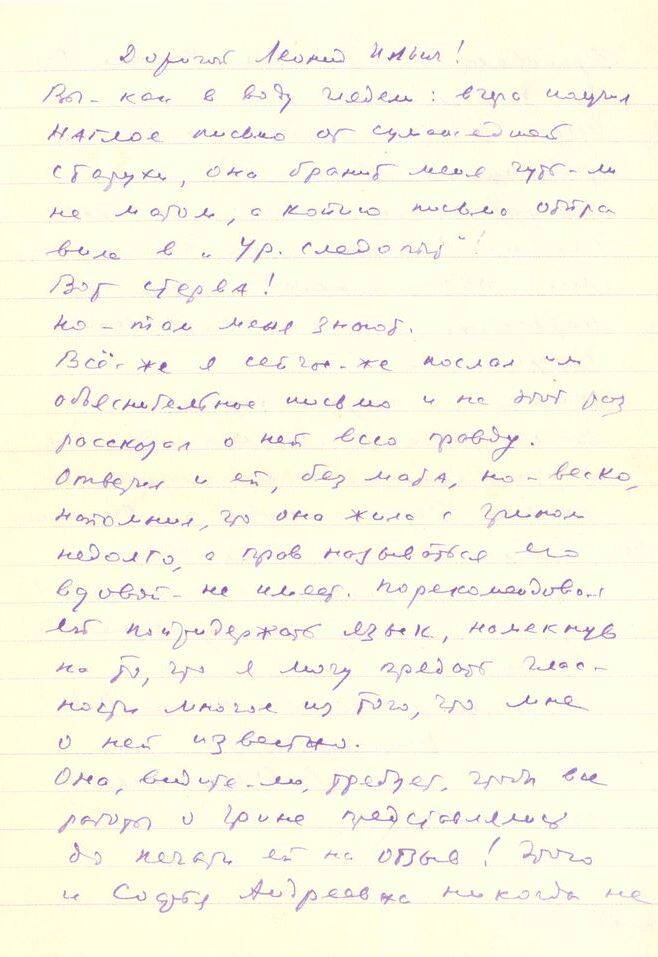 Дорогой Леонид Ильич!
Вы - как в воду глядели: вчера получил
наглое письмо от сумасшедшей
старухи, она бранит меня чуть-ли
не матом, а копию письма отпра
вила в „Ур. следопыт"!
Вот стерва!
Но - там меня знают.
Всё-же я сейчас-же послал им
объяснительное письмо и на этот раз
рассказал о ней всю правду.
Ответил и ей, без мата, но - веско,
напомнил, что она жила с Грином
недолго, а прав называться его
вдовой - не имеет. Порекомендовал
ей попридержать язык, намекнув
на то, что я могу предать глас-
ности многое из того, что мне
о ней известно.
Она, видите-ли, требует, чтобы все
работы о Грине представлялись
до печати ей на отзыв! Этого
и Софья Андреевна никогда не